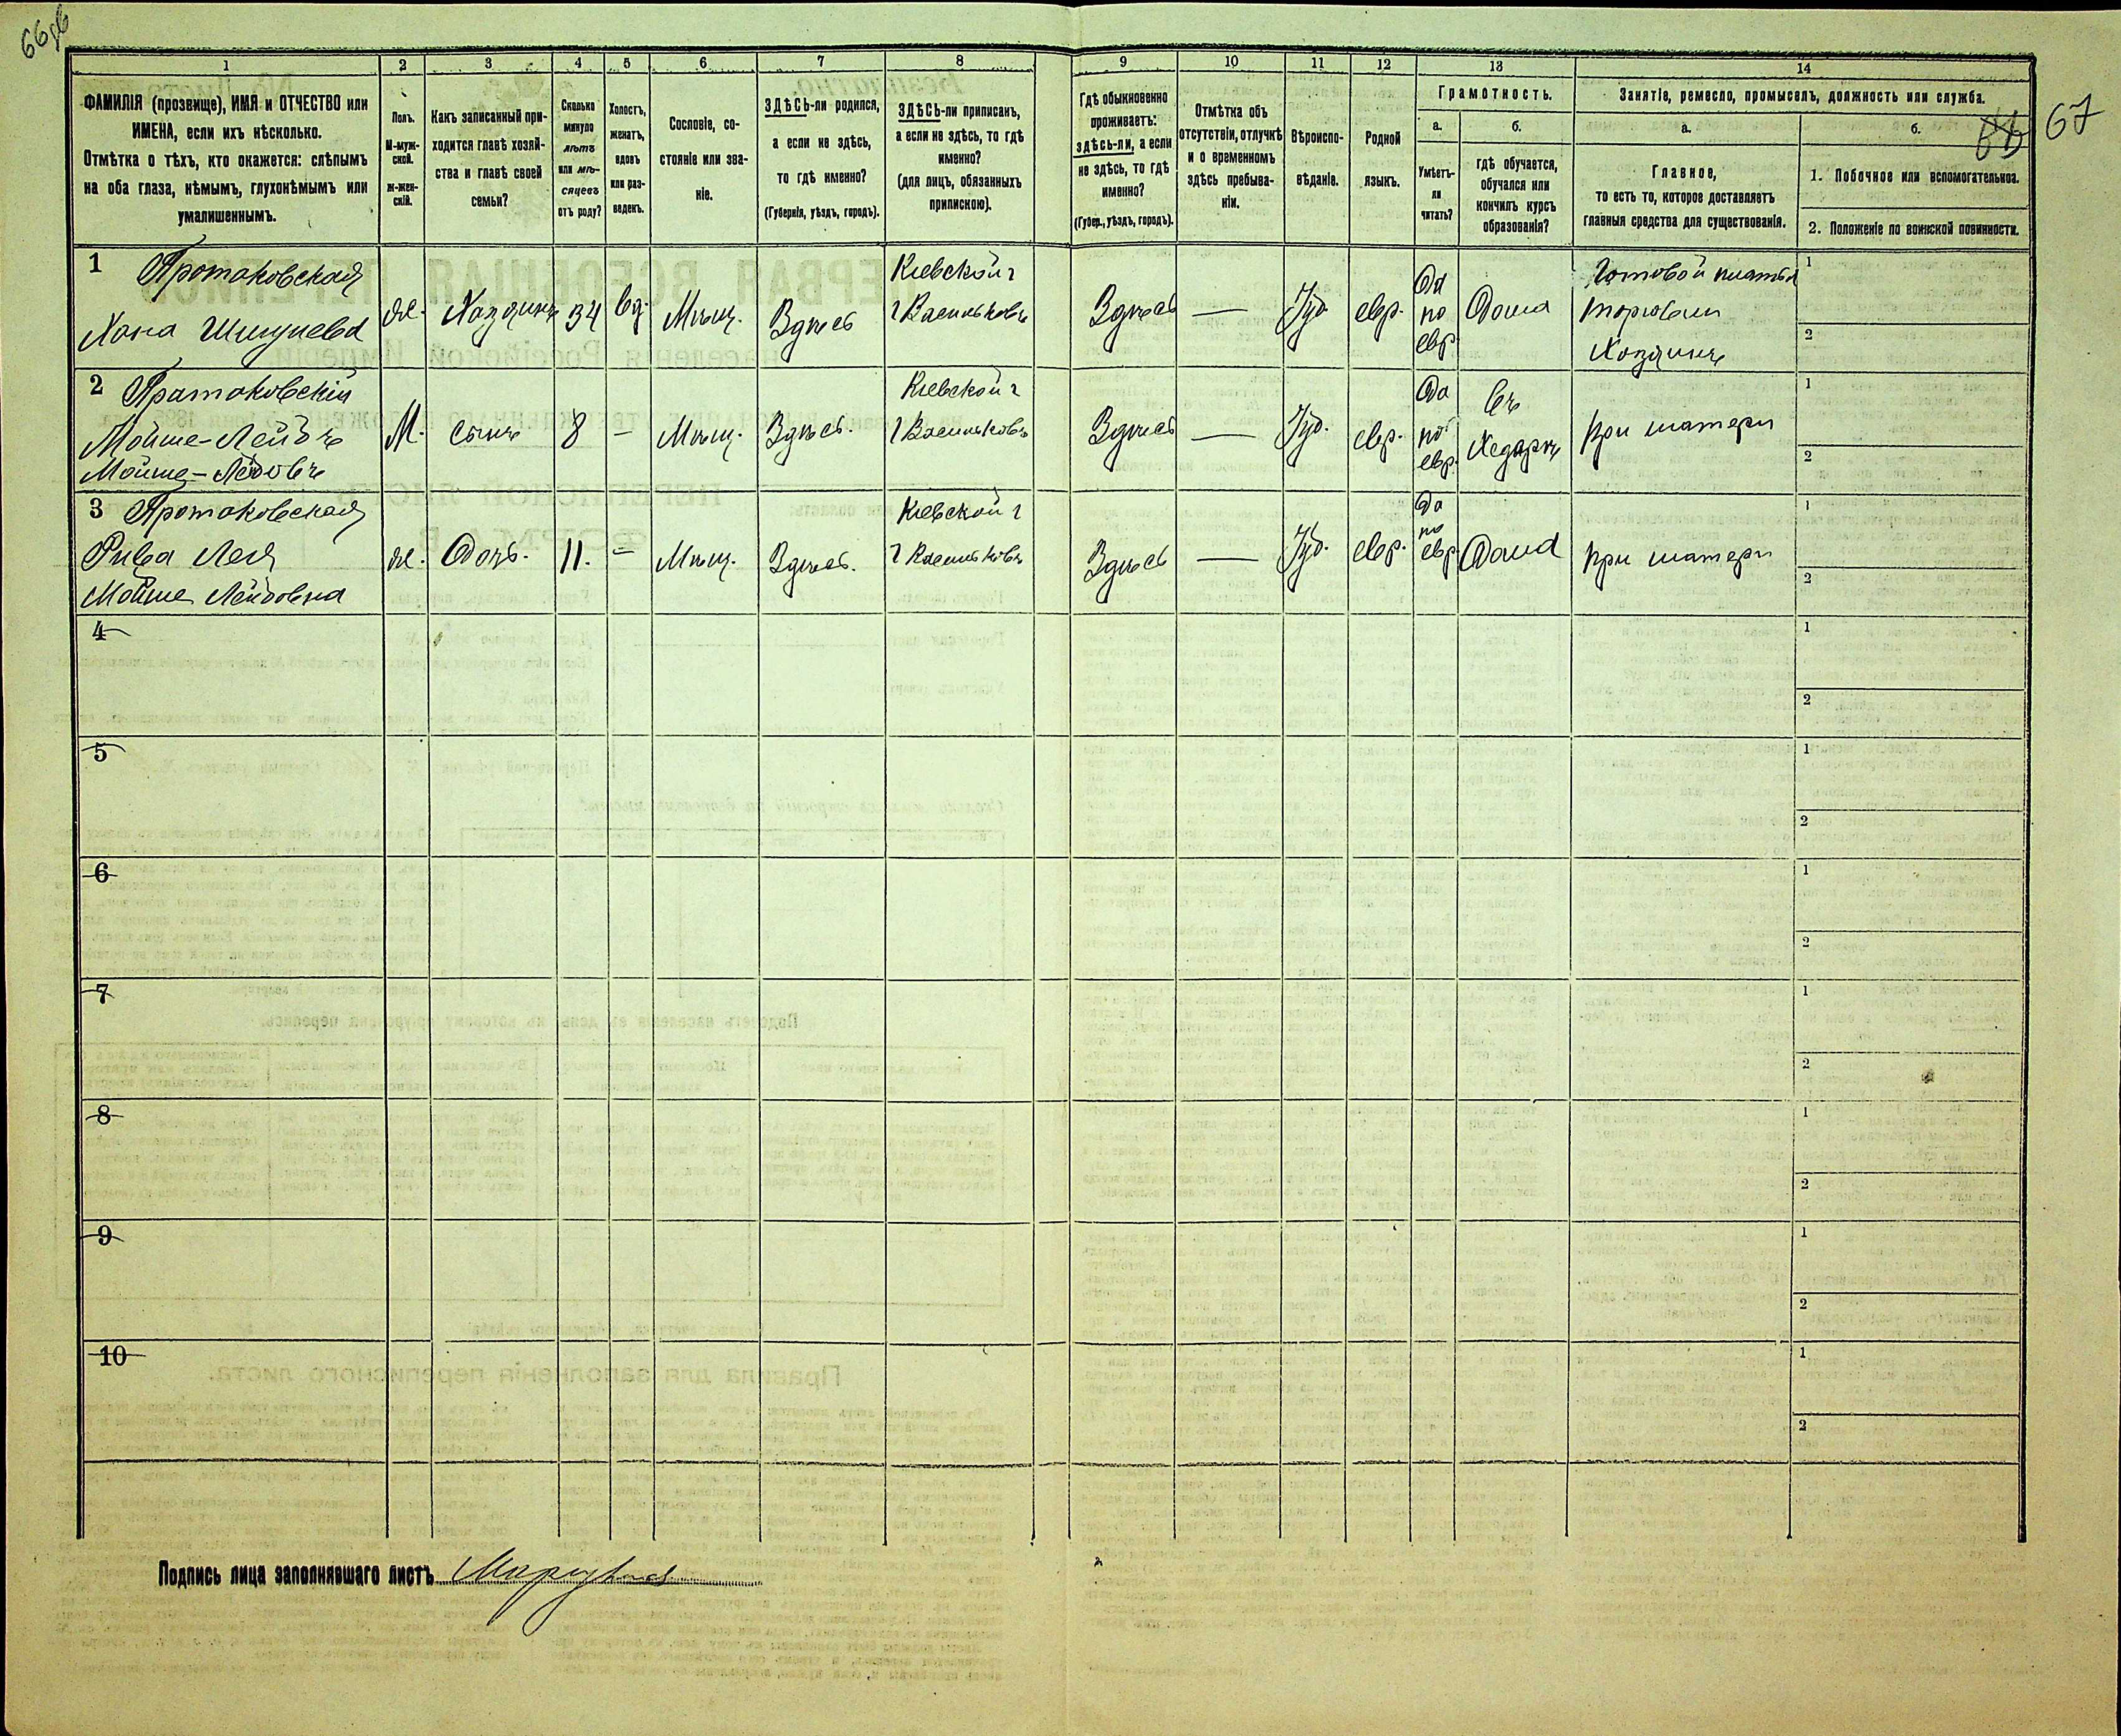 66об
67
1 2 3 4 5 6 7 8 9 10 11 12 13 14
ФАМИЛІЯ (прозвище), ИМЯ и ОТЧЕСТВО или
ИМЕНА, если ихъ нѣсколько.
Отмѣтка о тѣхъ, кто окажется: слѣпымъ
на оба глаза, нѣмымъ, глухонѣмымъ или
умалишеннымъ.
Полъ.
М-муж-
ской.
ж-жен-
скій.
Какъ записанный при-
ходится главѣ хозяй-
ства и главѣ своей
семьи?
Сколько
минуло
лѣтъ
или мѣ-
сяцевъ
отъ роду?
Холостъ,
женатъ,
вдовъ
или раз-
веденъ.
Сословіе, со-
стояніе или зва-
ніе.
ЗДѢСЬ-ли родился,
а если не здѣсь,
то гдѣ именно?
(Губернія, уѣздъ, городъ).
ЗДѢСЬ-ли приписанъ,
а если не здѣсь, то гдѣ
именно?
(для лицъ, обязанныхъ
припискою).
Гдѣ обыкновенно
проживаетъ:
здѣсь-ли, а если
не здѣсь, то гдѣ
именно?
(Губер., уѣздъ, городъ).
Отмѣтка объ
отсутствіи, отлучкѣ
и о временномъ
здѣсь пребыва-
ніи.
Вѣроиспо-
вѣданіе.
Родной
языкъ.
Грамотность.
а.
Умѣетъ-
ли
читать?
б.
гдѣ обучается,
обучался или
кончилъ курсъ
образованія?
Занятіе, ремесло, промыселъ, должность или служба.
а.
Главное,
то есть то, которое доставляетъ
главныя средства для существованія.
б.
1. Побочное или вспомогательное.
2. Положеніе по воинской повинности.
1
Протаковская
Хана Шмулева
же.
Хозяинъ
34
вд.
Мѣщ.
Здѣсь
Кіевской г
г Васильковъ
Здѣсь
—
Іуд.
евр.
Да
по
евр.
Дома
Готовой платья
торговли
Хозяинъ
1
2
2
Протаковскій
Мойше-Лейбъ
Мойше-Лейбовъ
М.
сынъ
8
—
Мѣщ.
Здѣсь.
Кіевской г
г Васильковъ
Здѣсь
—
Іуд.
евр.
Да
по
евр.
въ
Хедерѣ
при матери
1
2
3
Протаковская
Рива Лея
Мойше Лейбовна
же.
Дочь.
11.
—
Мѣщ.
Здѣсь.
Кіевской г
г Васильковъ
Здѣсь
—
Іуд.
евр.
Да
по
евр.
Дома
при матери
1
2
4
1
2
5
1
2
6
1
2
7
1
2
8
1
2
9
1
2
10
1
2
Подпись лица заполнявшаго листъ